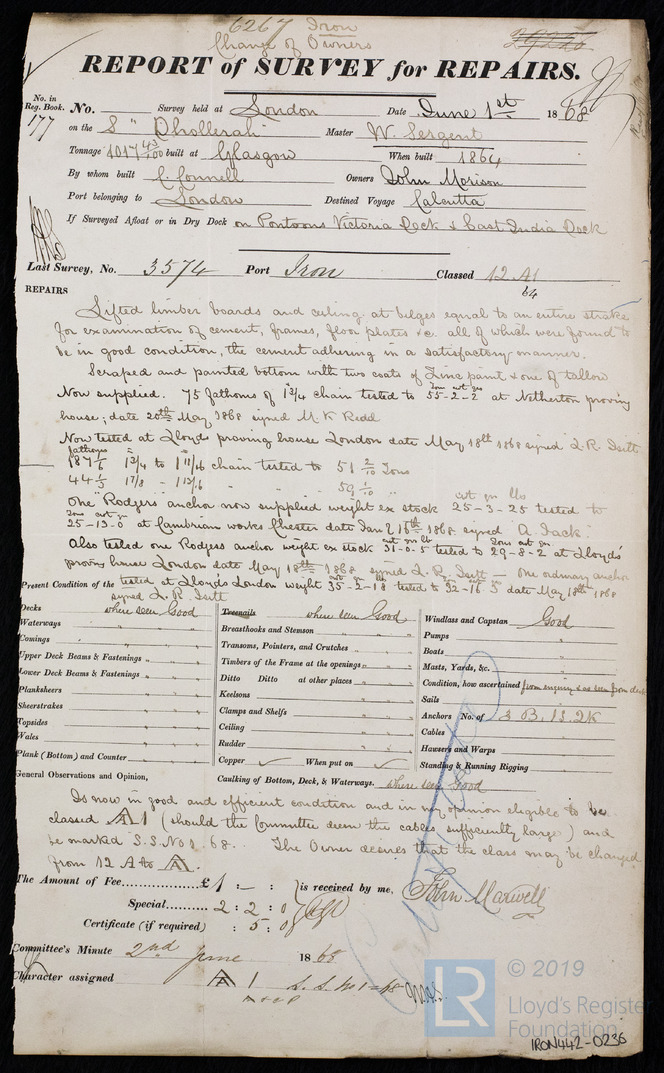 6267 Iron
Change of Owners
REPORT of SURVEY for REPAIRS.
No. in Reg. Book. No. Survey held at London Date June 1st 1868
177 on the S " Dhollerah Master W. Sergent
Tonnage 1017 43/100 built at Glasgow When built 1864
By whom built C. Connell Owners John Morison
Port belonging to London Destined Voyage Calcutta
If Surveyed Afloat or in Dry Dock on Pontoons Victoria Dock & East India Dock
Last Survey, No. 3574 Port Iron Classed 12 A1
64
REPAIRS
Lifted limber boards and ceiling at belges equal to an entire strake
for examination of cement, frames, floor plates &c. all of which were found to
be in good condition, the cement adhering in a satisfactory manner.
Scraped and painted bottom with two coats of Zinc paint & one of tallow
Tons cwt qrs
Now supplied. 75 fathoms of 1 3/4 chain tested to 55-2-2 at Netherton proving
house; date 20th May 1868 signed M. K. Redd
Now tested at Lloyds proving house London date May 18th 1868 signed L. R. Isitt
fathoms
187 1/6 1 3/4 to 1 11/16 chain tested to 51 2/10 Tons
44 1/3 1 7/8 - 1 13/16 " " " 59 1/10 "
cwt qr lbs
One "Rodgers" anchor now supplied weight ex stock 25-3-25 tested to
Tons cwt qr
25-13-0 at Cambrian works Chester date Jany 15th 1868 signed A. Jack.
cwt qr lb Tons cwt qr
Also tested one Rodgers anchor weight ex stock 31-0-5 tested to 29-8-2 at Lloyds'
proving house London date May 18th 1868 signed L. R. Isitt — one ordinary anchor
Present Condition of the tested at Lloyd's London weight 35-2-18 tested to 32-16-3 date May 18th 1868
signed L. R. Isitt
Decks where seen Good
Waterways " "
Comings " " "
Upper Deck Beams & Fastenings " " "
Lower Deck Beams & Fastenings " " "
Planksheers " "
Sheerstrakes " "
Topsides " "
Wales " "
Plank (Bottom) and Counter " "
Treenails where seen Good
Breasthooks and Stemson " "
Transoms, Pointers, and Crutches " "
Timbers of the Frame at the openings " "
Ditto Ditto at other places " "
Keelsons " "
Clamps and Shelfs " "
Ceiling " "
Rudder " "
Copper ✓ When put on ✓
Caulking of Bottom, Deck, & Waterways. where seen Good
Windlass and Capstan Good
Pumps "
Boats "
Masts, Yards, &c. "
Condition, how ascertained from enquiry & as seen from deck
Sails "
Anchors No. of 3 B. 1S. 2K
Cables "
Hawsers and Warps "
Standing & Running Rigging "
General Observations and Opinion,
Is now in good and efficient condition and in my opinion eligible to be
classed A 1 (should the Committee deem the cables sufficiently large) and
be marked S.S. No 1. 68. The Owner desires that the class may be changed
from 12 A to A.
The Amount of Fee £ 1 : – : is received by me, John Marwell
Special 2 : 2 : 0
Certificate (if required) : 5 : 0
Committee's Minute 2nd June 1868
Character assigned A 1 S.S. No 1 - 68
LR
© 2019
Lloyd's Register
Foundation
IRON442-0236